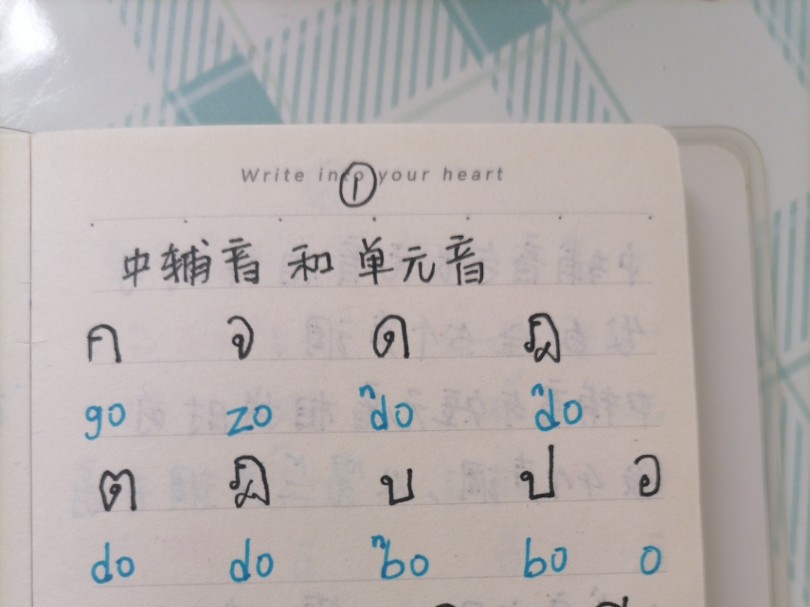 Write into your heart
①
中辅音和单元音
ก จ ด ฎ
go zo ⁿdo ⁿdo
ต ฏ บ ป อ
do do ⁿbo bo o